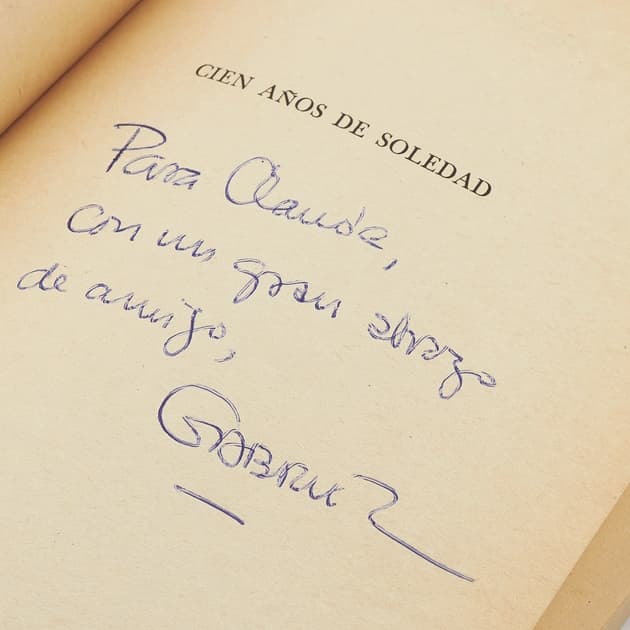 CIEN AÑOS DE SOLEDAD
Para Claude,
con un gran abrazo
de amigo,
GABRIEL